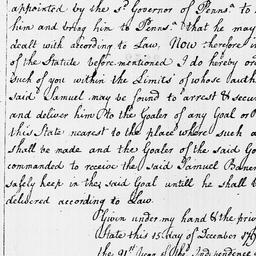 appointed by the sd. Governor of Pennsa. to
him and bring him to Pennsa. that he may
dealt with according to Law, Now therefore in
of the Statute before mentioned I do hereby
such of you within the Limits of whose
said Samuel may be found to arrest & secu
and deliver him to the Goaler of any Goal or
this State nearest to the place where such a
shall be made and the Goaler of the said Go
commanded to receive the said Samuel
safely keep in the said Goal untill he shall
delivered according to Law.
Given under my hand & the priv
State this 15 day of December 179
the 21st Year of the Independence